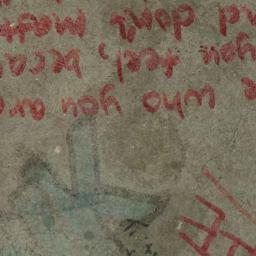 e who you are
you feel, beca
nd don't matt